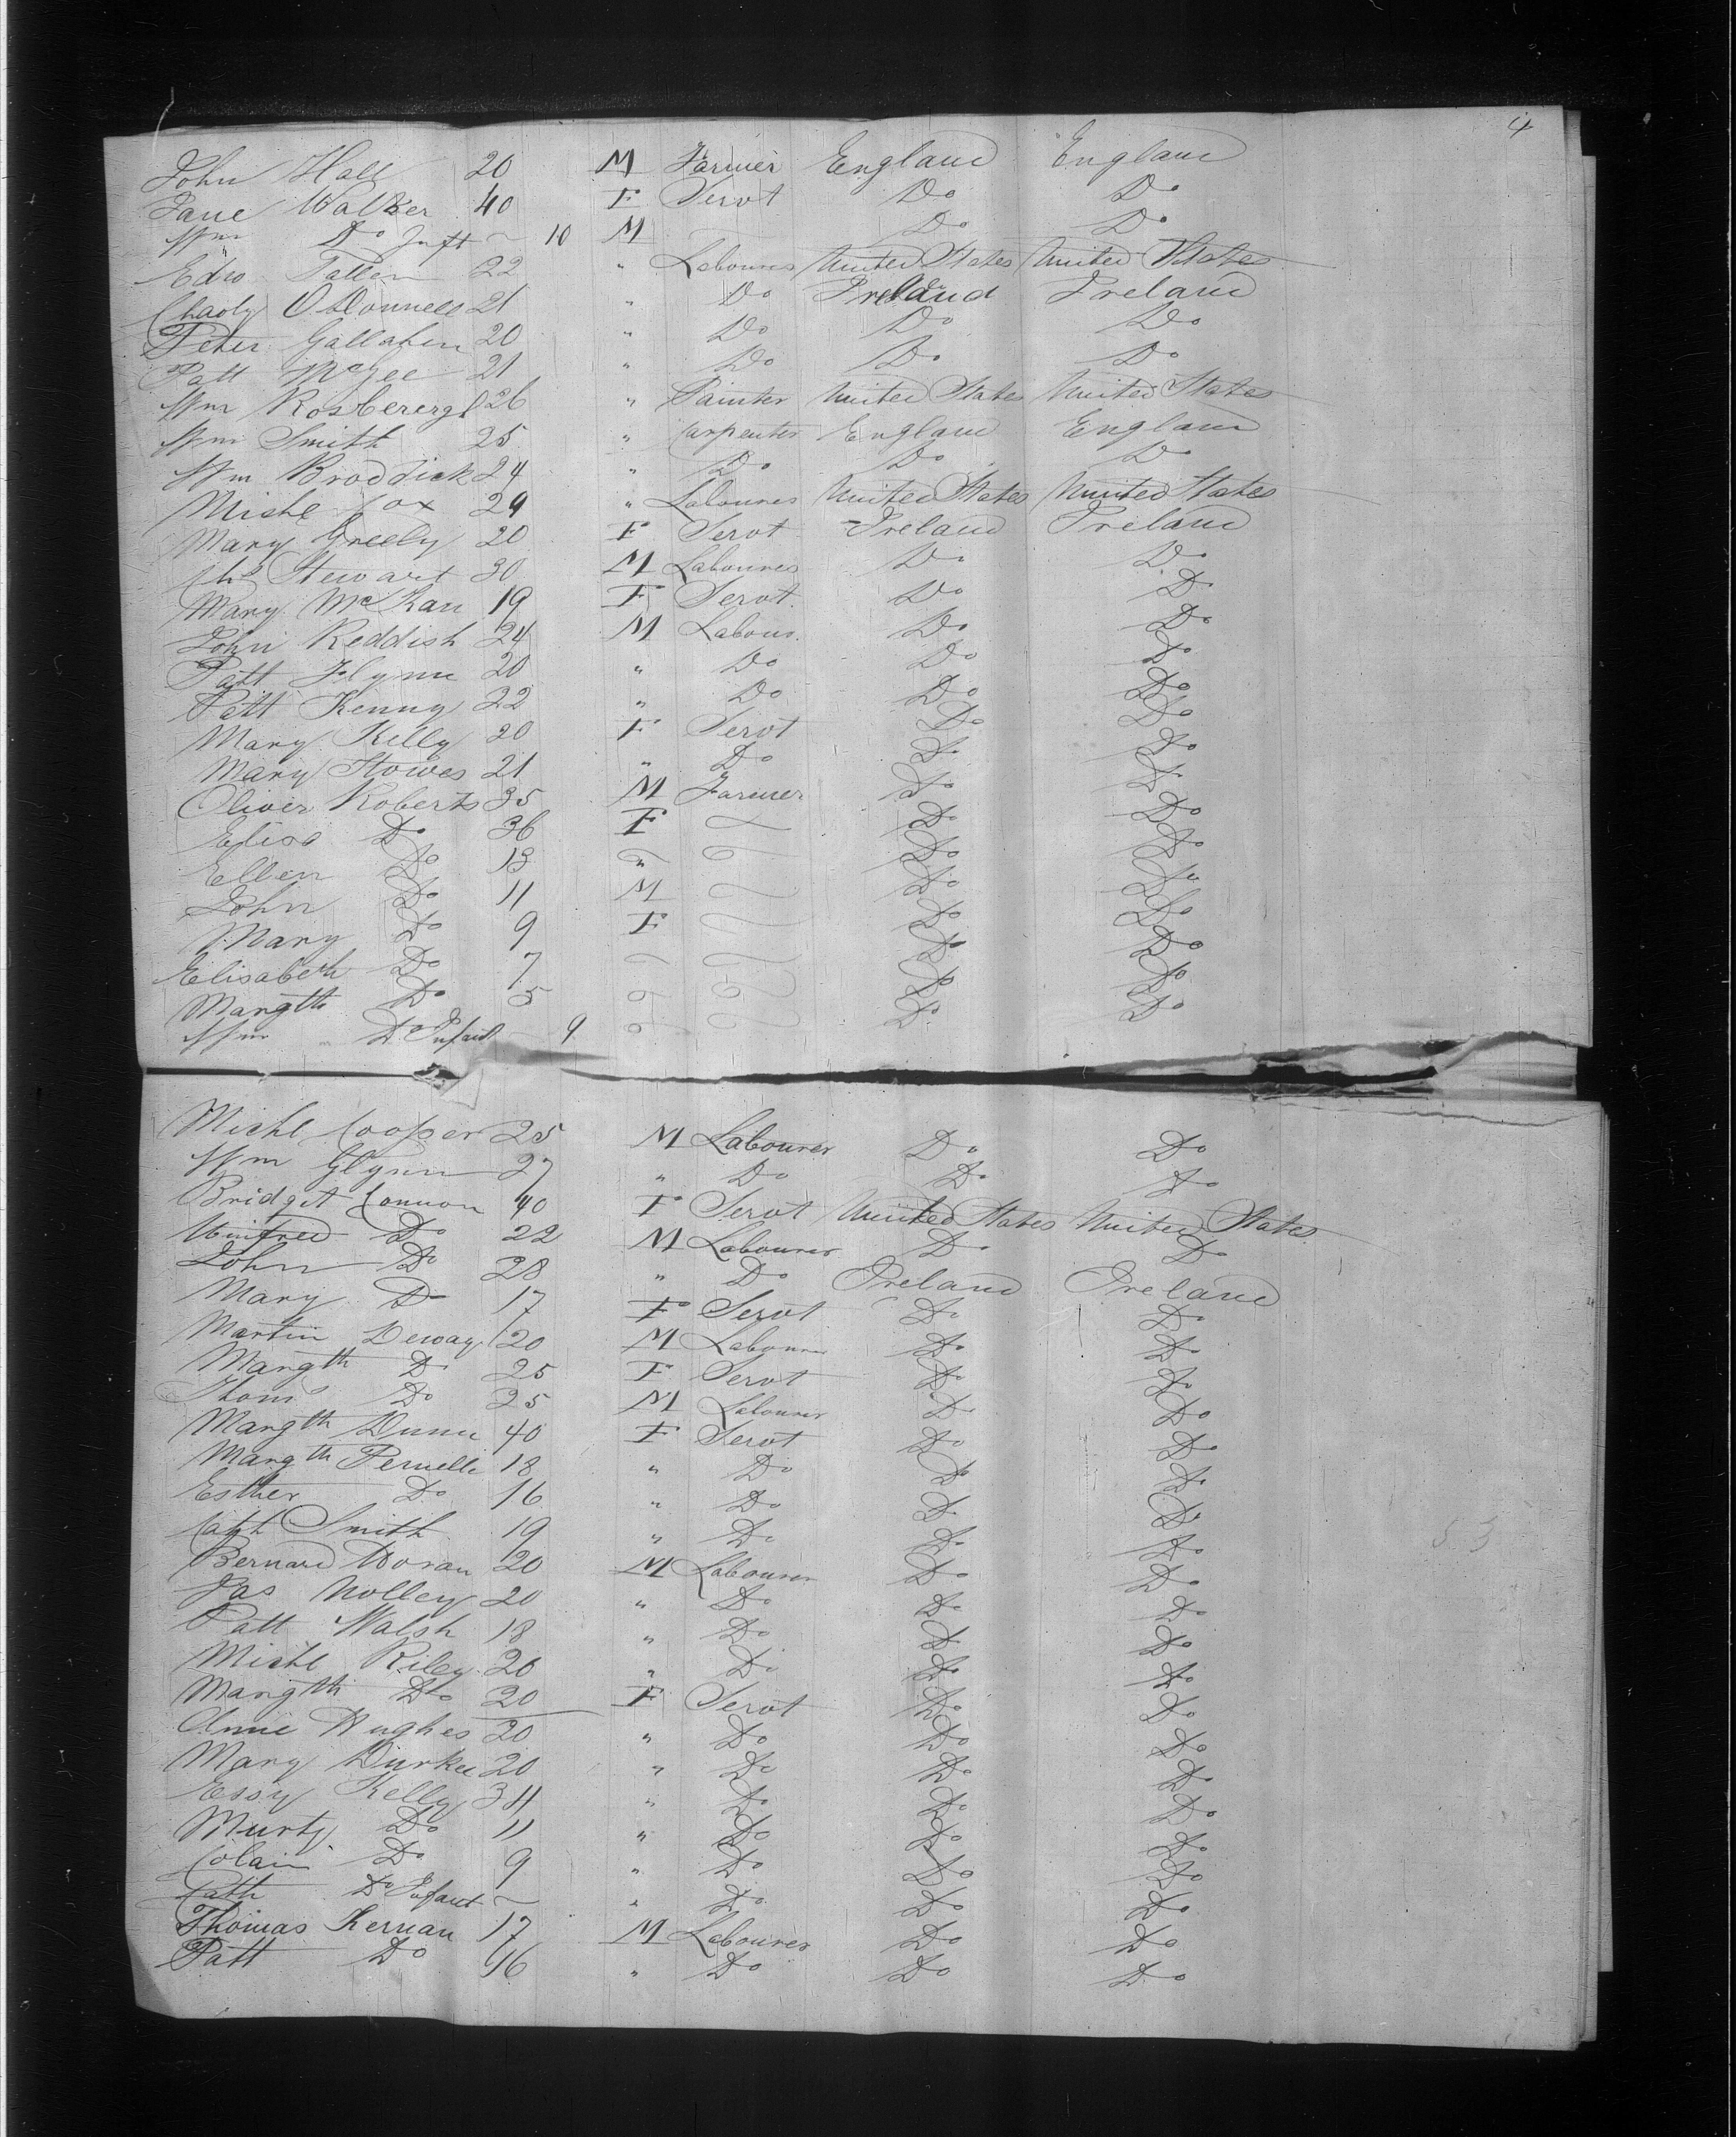 4
John Hall 20 M Farmer England England
Jane Walker 40 F Servt Do Do
Wm Do Inft ~ 10 M Do Do
Edwd Fallen 22 " Labourer United States United States
Charly O'Donnell 21 " Do Ireland Ireland
Peter Gallaher 20 " Do Do Do
Patt McGee 21 " Do Do Do
Wm 26 " Painter United States United States
Wm Smith 25 " Carpenter England England
Wm Broddick 24 " Do Do Do
Michl Cox 29 " Labourer United States United States
Mary Greely 20 F Servt Ireland Ireland
Chs Stewart 30 M Labourer Do Do
Mary 19 F Servt Do Do
John Reddish 24 M Labour. Do Do
Patt Flynn 20 " Do Do Do
Patt Kenny 22 " Do Do Do
Mary Kelly 20 F Servt Do Do
Mary Howes 21 " Do Do Do
Oliver Roberts 35 M Farmer Do Do
Eliza Do 36 F Do Do
Ellen Do 13 " Do Do
John Do 11 M Do Do
Mary Do 9 F Do Do
Elisabeth Do 7 Do Do
Margth Do 5 Do Do
Wm Do Infant 9 Do Do
Michl Cooper 25 M Labourer Do Do
Wm Glynn 27 " Do Do Do
Bridget Connon 40 F Servt United States United States
Winifred Do 22 M Labourer Do Do
John Do 28 " Do Ireland Ireland
Mary Do 17 F Servt Do Do
Martin Deway 20 M Labourer Do Do
Margth Do 25 F Servt Do Do
Thoms Do 25 M Labourer Do Do
Margth Dunn 40 F Servt Do Do
Margth 18 " Do Do Do
Esther Do 16 " Do Do Do
Cath Smith 19 " Do Do Do
Bernard 20 M Labourer Do Do
Jas Nolley 20 " Do Do Do
Patt Walsh 18 " Do Do Do
Michl Riley 20 " Do Do Do
Margth Do 20 F Servt Do Do
Anne Hughes 20 " Do Do Do
Mary Durkee 20 " Do Do Do
Essy Kelly 34 " Do Do Do
Murty Do 11 " Do Do Do
Do 9 " Do Do Do
Cath Do Infant ~ " Do Do Do
Thomas Kernan 17 M Labourer Do Do
Patt Do 16 " Do Do Do
53